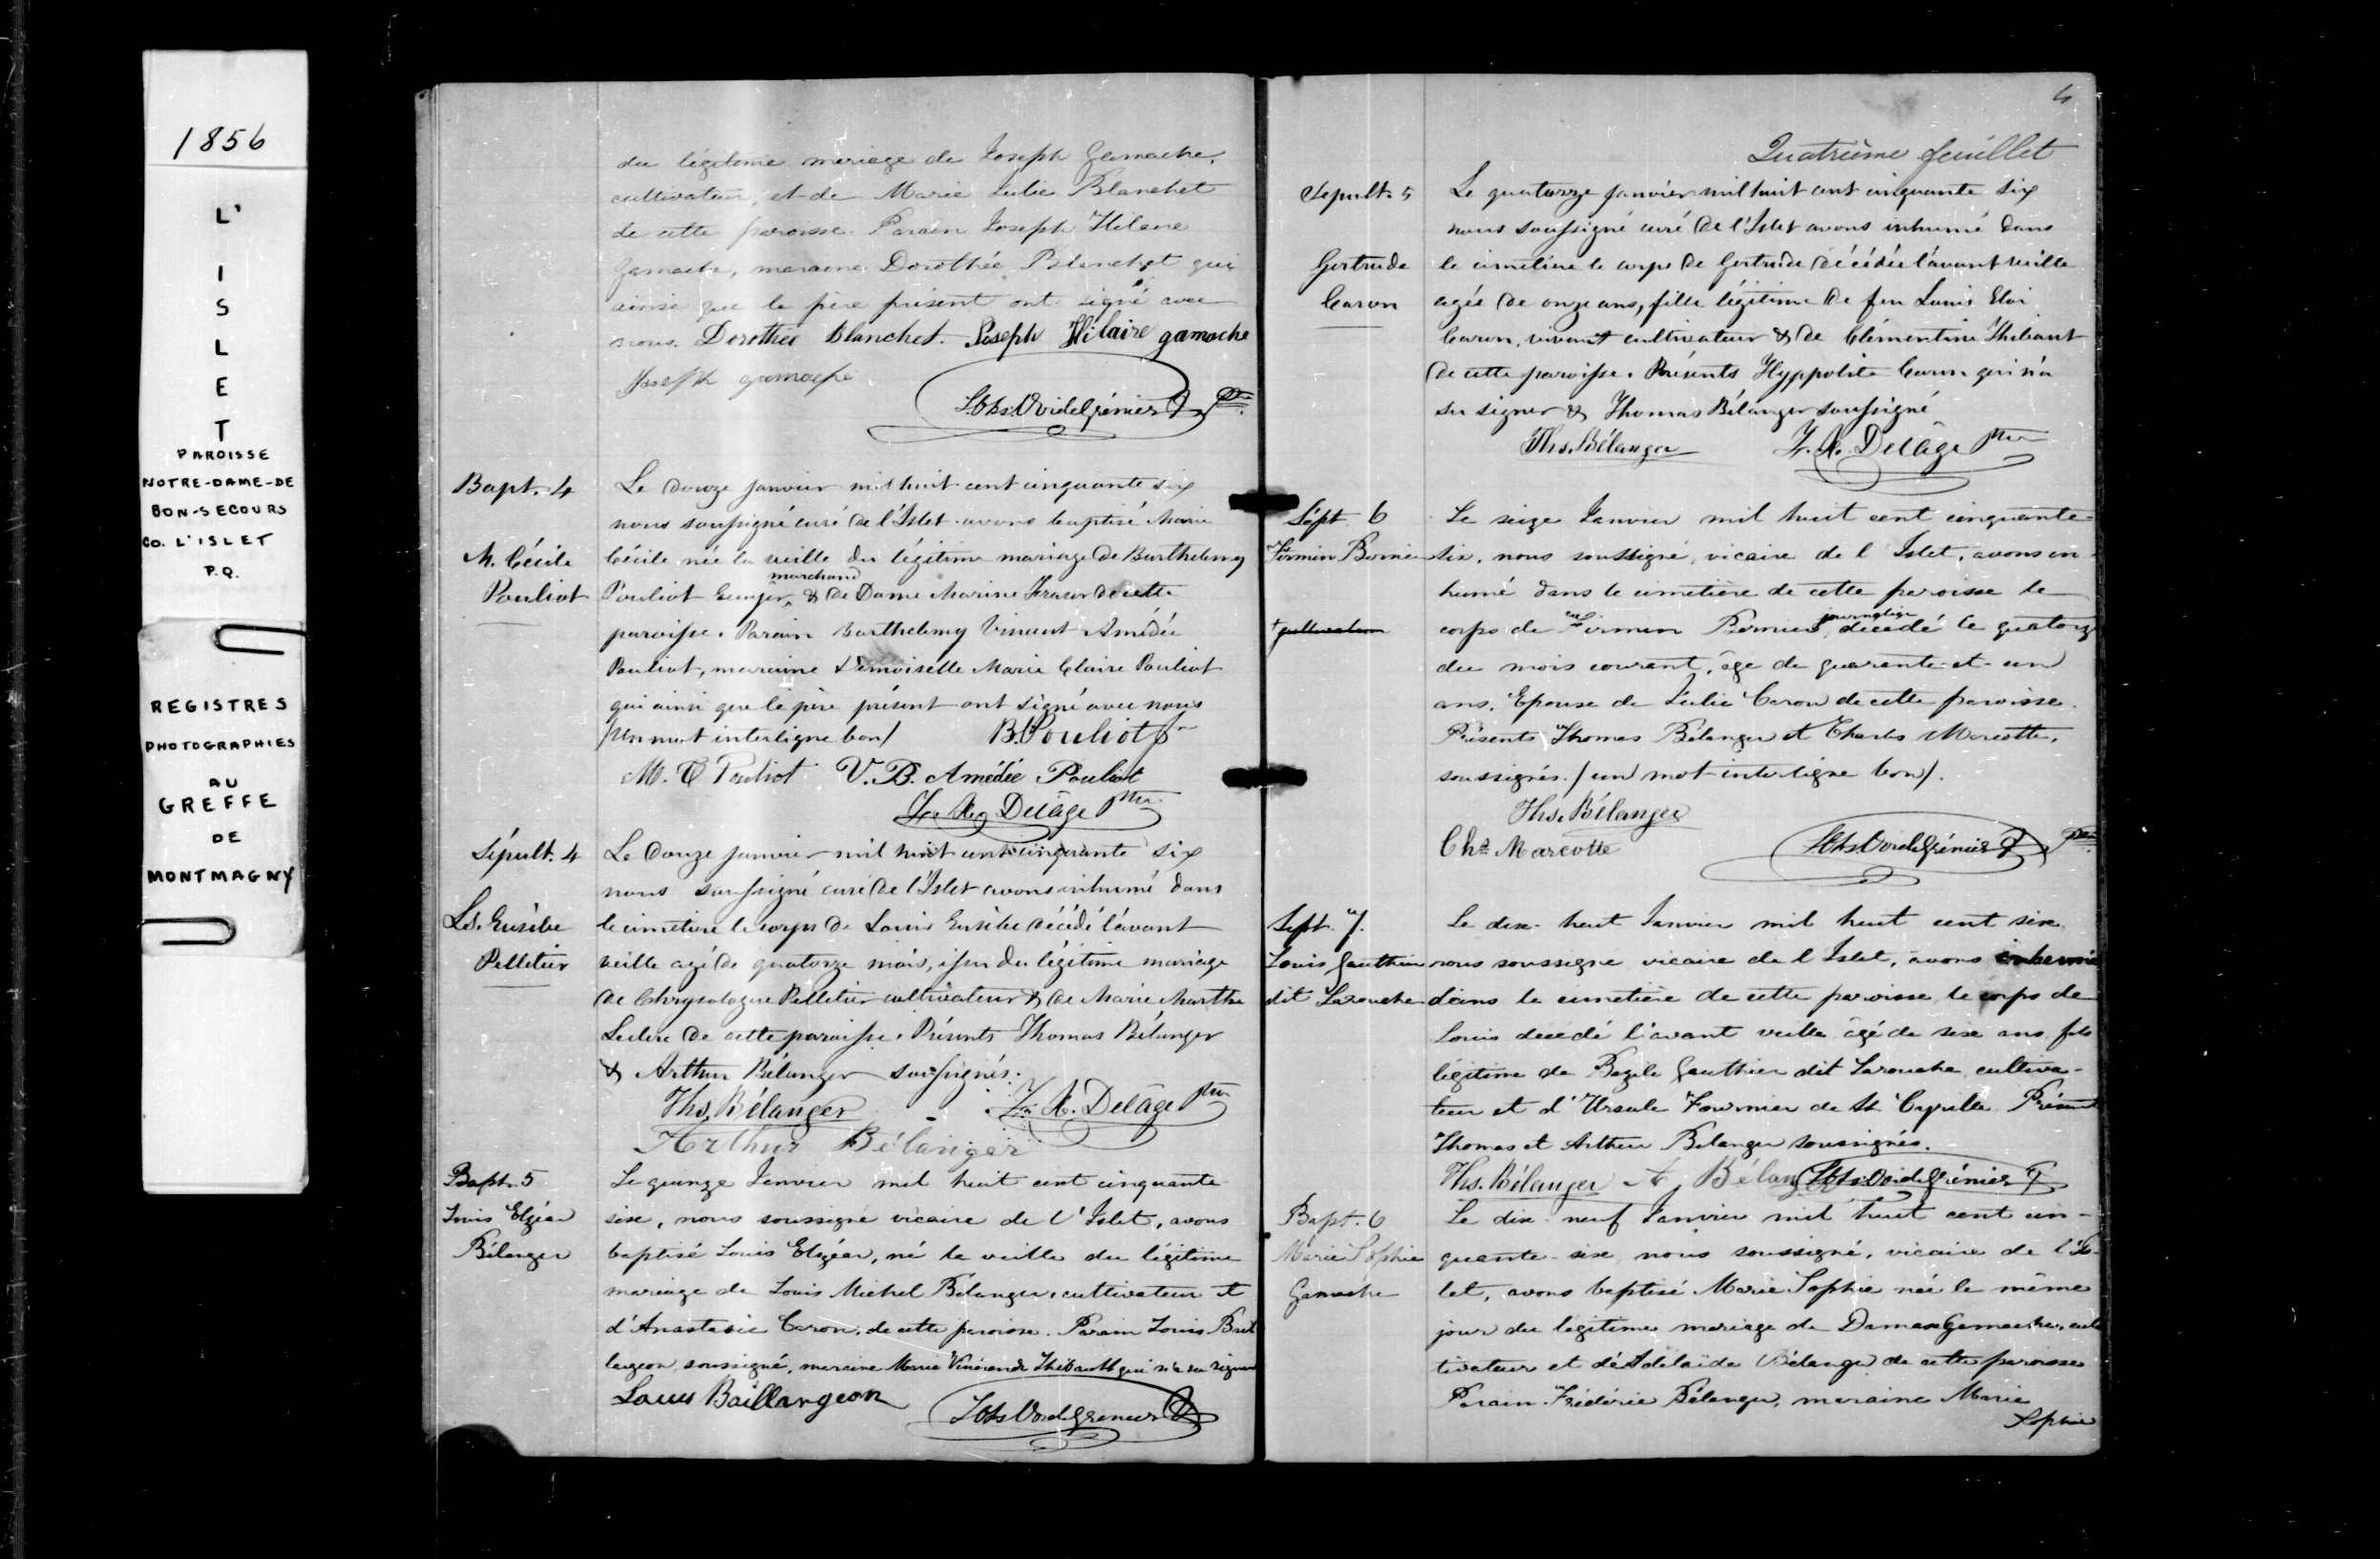 1856
L'
I
S
L
E
T
PAROISSE
NOTRE-DAME-DE
BON-SECOURS
CO. L'ISLET
P.Q.
REGISTRES
PHOTOGRAPHIES
AU
GREFFE
DE
MONTMAGNY
du légitime mariage de Joseph Gamache,
cultivateur, et de Marie Julie Blanchet
de cette paroisse. Parain Joseph Hilaire
Gamache, maraine Dorothée Blanchet qui
ainsi que le père présent ont signé avec
nous. Dorothée Blanchet. Joseph Hilaire gamache
Joseph gamache
Ptre
Bapt. 4
M. Cécile
Pouliot
Le douze janvier mil huit cent cinquante six
nous soussigné curé de l'Islet avons baptisé Marie
Cécile née la veille du légitime mariage de Barthelemy
marchand
Pouliot Ecuyer, & de Dame Marine Fraser de cette
paroisse. Parain Barthelemy Vincent Amédée
Pouliot, maraine Demoiselle Marie Claire Pouliot
qui ainsi que le père présent ont signé avec nous
/un mot interligne bon/ B. Pouliot
M. C Pouliot V. B. Amédée Pouliot
F. X. Delâge Ptre
Sépult. 4
Ls. Eusèbe
Pelletier
Le douze janvier mil huit cent cinquante six
nous soussigné curé de l'Islet avons inhumé dans
le cimetière le corps de Louis Eusèbe décédé l'avant
veille agé de quatorze mois, issu du légitime mariage
de Chrysologue Pelletier cultivateur & de Marie Marthe
Leclerc de cette paroisse. Présents Thomas Bélanger
& Arthur Bélanger soussignés.
Ths. Bélanger F. X. Delâge Ptre
Arthur Bélanger
Bapt. 5
Louis Elzéar
Bélanger
Le quinze Janvier mil huit cent cinquante
six, nous soussigné vicaire de l'Islet, avons
baptisé Louis Elzéar, né la veille du légitime
mariage de Louis Michel Bélanger, cultivateur et
d'Anastasie Caron, de cette paroisse. Parain Louis Bail
largeon soussigné, maraine Marie Vénérande Thibault qui n'a su signer
Louis Baillargeon
4
Quatrième feuillet
Sepult. 5
Gertrude
Caron
Le quatorze janvier mil huit cent cinquante six
nous soussigné curé de l'Islet avons inhumé dans
le cimetière le corps de Gertrude décédée l'avant veille
agée de onze ans, fille légitime de feu Louis Eloi
Caron, vivant cultivateur & de Clémentine Thibaut
de cette paroisse. Présents Hyppolite Caron qui n'a
su signer & Thomas Bélanger soussigné
Ths. Bélanger F. X. Delâge Ptre
Sépt. 6
Firmin Bernier
Le seize Janvier mil huit cent cinquante
six, nous soussigné, vicaire de l'Islet, avons in
humé dans le cimetière de cette paroisse le
journalier
corps de Firmin Bernier, décédé le quatorze
du mois courant, âge de quarante-et-un
ans, Epouse de Julie Caron de cette paroisse.
Présents Thomas Bélanger et Charles Marcotte,
soussignés. /un mot interligne bon/.
Ths. Bélanger
Chs Marcotte
Ptre
Sept. 7.
Louis Gauthier
dit Larouche
Le dix-huit Janvier mil huit cent six
nous soussigné vicaire de l'Islet, avons inhumé
dans le cimetière de cette paroisse le corps de
Louis décédé l'avant veille âgé de six ans fils
légitime de Bazile Gauthier dit Larouche, cultiva-
teur et d'Ursule Fournier de St Cyrille. Présent
Thomas et Arthur Bélanger soussignés.
Ths. Bélanger A. Bélanger
Bapt. 6
Marie Sophie
Gamache
Le dix-neuf Janvier mil huit cent cin-
quante-six nous soussigné, vicaire de l'Is-
let, avons baptisé Marie Sophie née le même
jour du légitime mariage de Damase Gamache, cul
tivateur et de Adelaïde Bélanger de cette paroisse
Parain Fréderic Bélanger, maraine Marie
Sophie